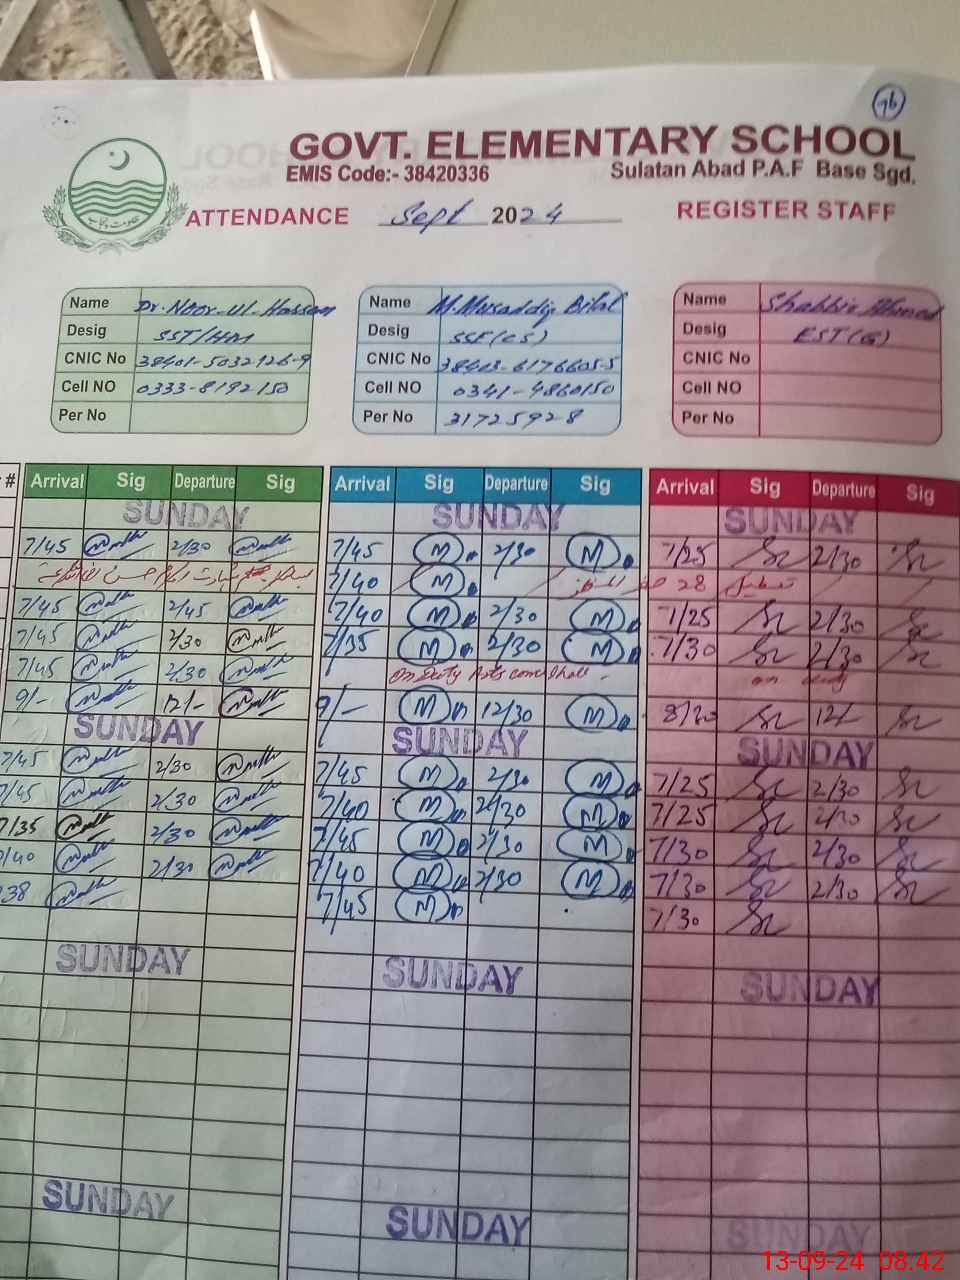 96
GOVT. ELEMENTARY SCHOOL
EMIS Code:- 38420336 Sulatan Abad P.A.F Base Sgd.
ATTENDANCE Sept 2024 REGISTER STAFF
Name Dr. Noor-Ul-Hassan Name M.Musaddiq Bilal Name Shabbir Ahmad
Desig SST/HM Desig SSE(CS) Desig EST(G)
CNIC No 38401-5032926-9 CNIC No 38403-6176605-5 CNIC No
Cell NO 0333-8192150 Cell NO 0341-4860150 Cell NO
Per No Per No 31725928 Per No
# Arrival Sig Departure Sig Arrival Sig Departure Sig Arrival Sig Departure Sig
SUNDAY SUNDAY SUNDAY
7/45 2/30 7/45 M 2/30 M 7/25 2/30
7/40 M 28
7/45 2/45 7/40 M 2/30 M 7/25 2/30
7/45 2/30 7/35 M 2/30 M 7/30 2/30
7/45 2/30 on Duty on duty
9/- 12/- 9/- M 12/30 M 8/30 12/
SUNDAY SUNDAY SUNDAY
7/45 2/30 7/45 M 2/30 M 7/25 2/30
7/45 2/30 7/40 M 2/30 M 7/25 2/30
7/35 2/30 7/45 M 2/30 M 7/30 2/30
7/40 2/30 7/40 M 2/30 M 7/30 2/30
38 7/45 M 7/30
SUNDAY SUNDAY SUNDAY
SUNDAY SUNDAY SUNDAY
13-09-24 08:42